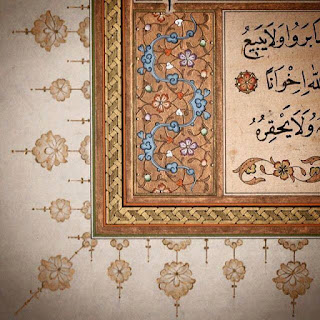 ابَرُوا وَلَا يَبِيعُ
الله اِخْوَانًا
هُ وَلَا يَحْقِرُهُ